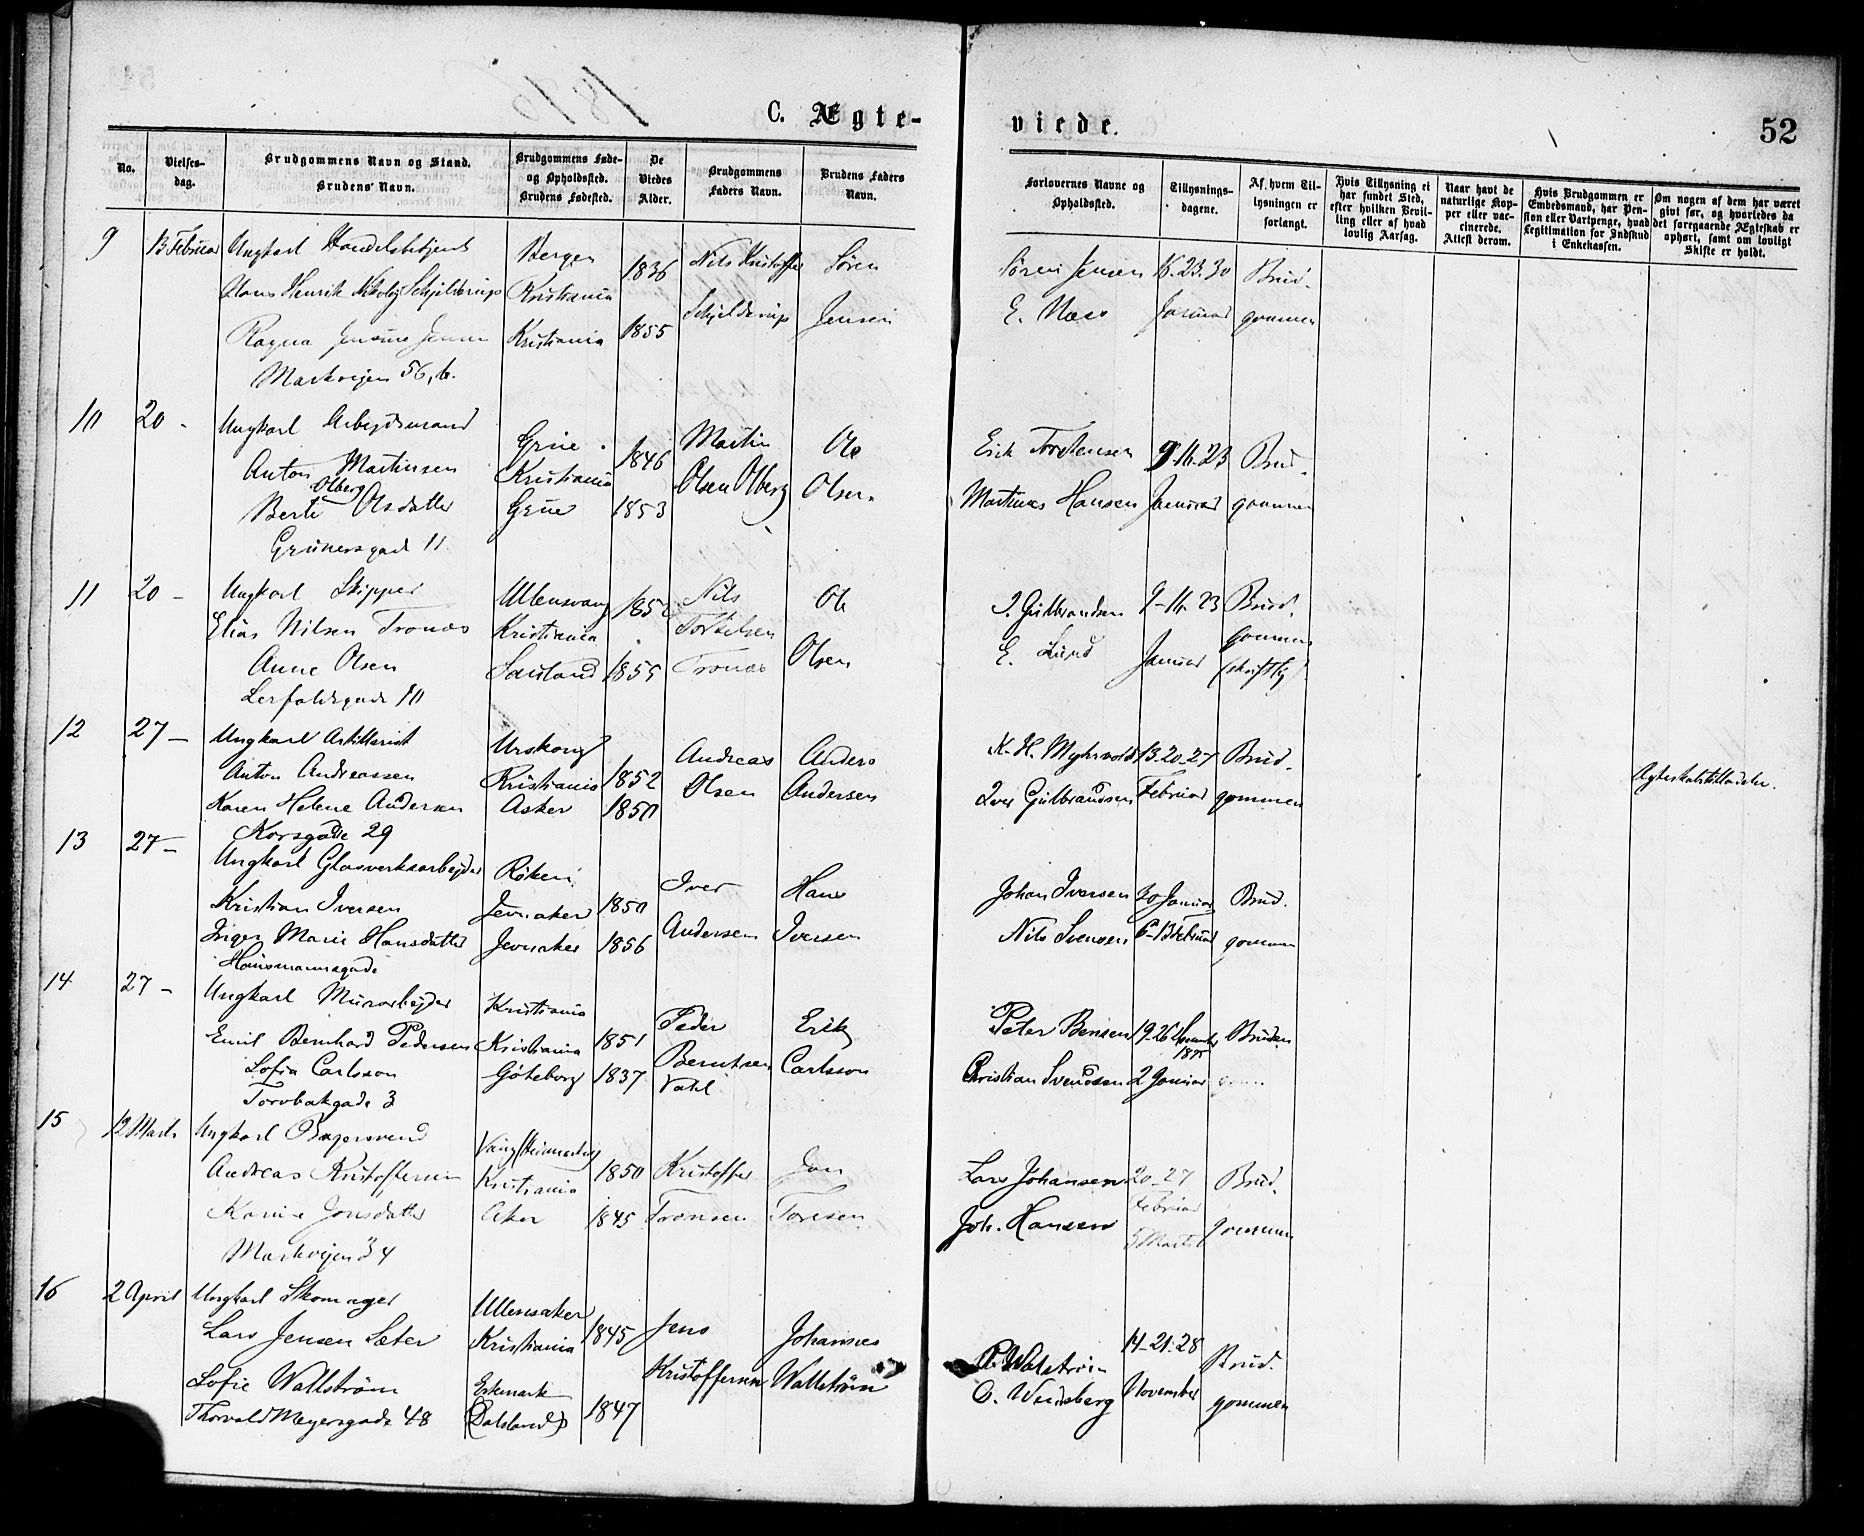 1876
C. Ægte-
viede.
52
No.
Vielses-
dag.
Brudgommens Navn og Stand.
Brudens Navn.
Brudgommens Føde-
og Opholdssted.
Brudens Fødested.
De
Viedes
Alder.
Brudgommens
Faders Navn.
Brudens Faders
Navn.
Forlovernes Navne og
Opholdssted.
Tillysnings-
dagene.
Af hvem Til-
lysningen er
forlangt.
Hvis Tillysning ei
har fundet Sted,
efter hvilken Bevil-
ling eller af hvad
lovlig Aarsag.
Naar havt de
naturlige Kop-
per eller vac-
cinerede.
Attest derom.
Hvis Brudgommen er
Embedsmand, har Pen-
sion eller Vartpenge, hvad
Legitimation for Indskud
i Enkekassen.
Om nogen af dem har været
givt før, og hvorledes da
det foregaaende Ægteskab er
ophørt, samt om lovligt
Skifte er holdt.
9
13 Februar
Ungkarl Handelsbetjent
Hans Henrik Nikolaj Schjelderup
Ragna Jensine Jensen
Markvejen 56, b.
Bergen
Kristiania
Kristiania
1836
1855
Nils Kristoffer
Schjelderup
Søren
Jensen
Søren Jensen
E. Næss
16. 23. 30
Januar
Brud-
gommen
10
20 -
Ungkarl Arbejdsmand
Anton Martinsen
Olberg
Berte Olsdatter
Grünersgade 11
Grue
Kristiania
Grue
1846
1853
Martin
Olsen Olberg
Ole
Olsen
Erik Torstensen
Martinus Hansen
9-16-23
Januar
Brud-
gommen
11
20 -
Ungkarl Skipper
Elias Nilsen Tronæs
Anne Olsen
Ullensvang
Kristiania
1852
1855
Nils
Tronæs
Ole
Olsen
Gulbrandsen
E. Lund
9-16-23
Januar
Brud-
gommen
skriftlig
12
27 -
Ungkarl Artillerist
Anton Andreassen
Karen Helene Andersen
Korsgade 29
Urskoug
Kristiania
Asker
1852
1850
Andreas
Olsen
Anders
Andersen
K. H. Myhrvold
Iver Gulbrandsen
13-20-27
Februar
Brud-
gommen
Ægteskabstilladelse.
13
27 -
Ungkarl Glasverksarbejder
Kristian Iversen
Inger Marie Hansdatter
Hausmannsgade
Røken
Jevnaker
Jevnaker
1850
1856
Iver
Andersen
Hans
Iversen
Johan Iversen
Nils Svensen
30 Januar
6-13 Februar
Brud-
gommen
14
27 -
Ungkarl Murarbejder
Emil Bernhard Pedersen
Sofia Carlsson
Torvbakgade 3
Kristiania
Kristiania
Göteborg
1851
1837
Peder
Berntsen
Vahl
Erik
Carlsson
Peter Bensen
Christian Svendsen
19-26 December
1875
2 Januar
Bruden
15
12 Marts
Ungkarl Bagersvend
Andreas Kristoffersen
Karine Jonsdatter
Markvejen 34
Vang Hedemarken
Kristiania
Aker
1850
1845
Kristoffer
Tronsen
Jon
Toresen
Lars Johansen
Joh. Hansen
20-27
Februar
5 Marts
Brud-
gommen
16
2 April
Ungkarl Skomager
Lars Jensen Sæter
Sofie Wallström
Thorvald Meyersgade 48
Ullensaker
Kristiania
(Dalsland)
1845
1847
Jens
Kristoffersen
Johannes
Wallström
Walström
14-21-28
November
Brud-
gommen